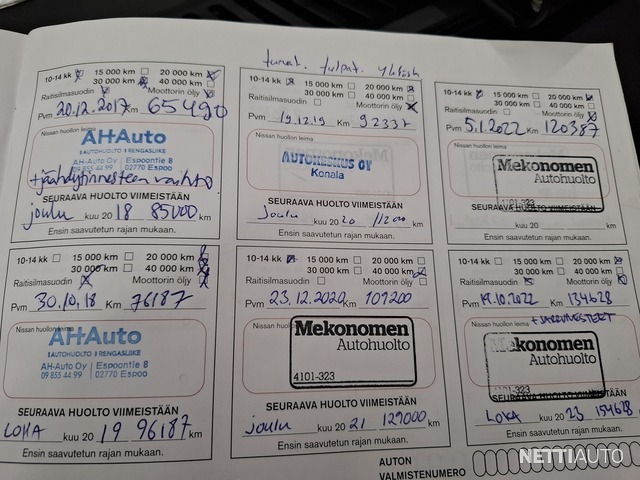 turvat. tulpat.
10-14 kk 15 000 km 20 000 km
30 000 km 40 000 km
Raitisilmasuodin Moottorin öljy
Pvm 20.12.2017 Km 65490
Nissan huollon leima
AHAuto
AUTOHUOLTO RENGASLIIKE
AH-Auto Oy Espoontie 8
09 855 44 99 02770 Espoo
+jäähdytinnesteen vaihto
SEURAAVA HUOLTO VIIMEISTÄÄN
joulu kuu 20 18 85000 km
Ensin saavutetun rajan mukaan.
10-14 kk 15 000 km 20 000 km
30 000 km 40 000 km
Raitisilmasuodin Moottorin öljy
Pvm 19.12.19 Km 92337
Nissan huollon leima
AUTOKESKUS OY
Konala
SEURAAVA HUOLTO VIIMEISTÄÄN
Joulu kuu 20 20 km
Ensin saavutetun rajan mukaan.
10-14 kk 15 000 km 20 000 km
30 000 km 40 000 km
Raitisilmasuodin Moottorin öljy
Pvm 5.1.2022 Km 120387
Nissan huollon leima
Mekonomen
Autohuolto
4101-323
SEURAAVA HUOLTO VIIMEISTÄÄN
kuu 20 km
Ensin saavutetun rajan mukaan.
10-14 kk 15 000 km 20 000 km
30 000 km 40 000 km
Raitisilmasuodin Moottorin öljy
Pvm 30.10.18 Km 76187
Nissan huollon leima
AHAuto
AUTOHUOLTO RENGASLIIKE
AH-Auto Oy Espoontie 8
09 855 44 99 02770 Espoo
SEURAAVA HUOLTO VIIMEISTÄÄN
LOKA kuu 20 19 96187 km
Ensin saavutetun rajan mukaan.
10-14 kk 15 000 km 20 000 km
30 000 km 40 000 km
Raitisilmasuodin Moottorin öljy
Pvm 23.12.2020 Km 109200
Nissan huollon leima
Mekonomen
Autohuolto
4101-323
SEURAAVA HUOLTO VIIMEISTÄÄN
joulu kuu 20 21 129000 km
Ensin saavutetun rajan mukaan.
10-14 kk 15 000 km 20 000 km
30 000 km 40 000 km
Raitisilmasuodin Moottorin öljy
Pvm 19.10.2022 Km 134628
+JARRUNESTEET
Nissan huollon leima
Mekonomen
Autohuolto
4101-323
SEURAAVA HUOLTO VIIMEISTÄÄN
LOKA kuu 20 23 154628 km
Ensin saavutetun rajan mukaan.
AUTON
VALMISTENUMERO
NETTIAUTO